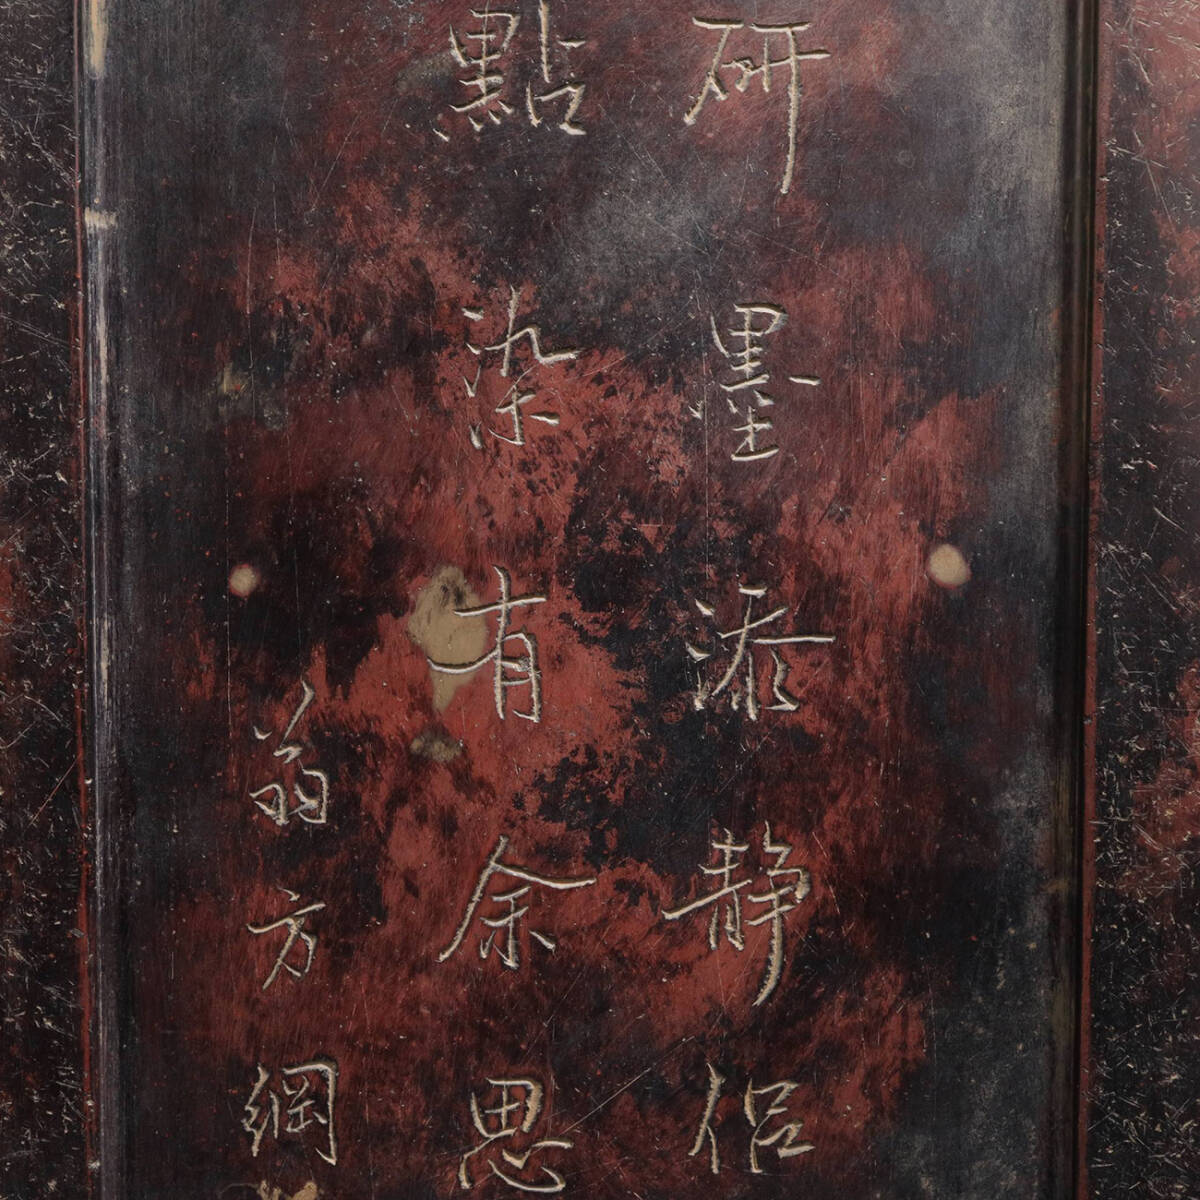 研墨添静侣
點染有余思
翁方綱